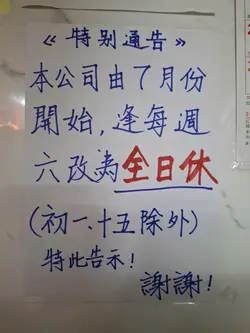 《特别通告》
本公司由7月份
開始,逢每週
六改為全日休
(初一、十五除外)
特此告示!
謝謝!